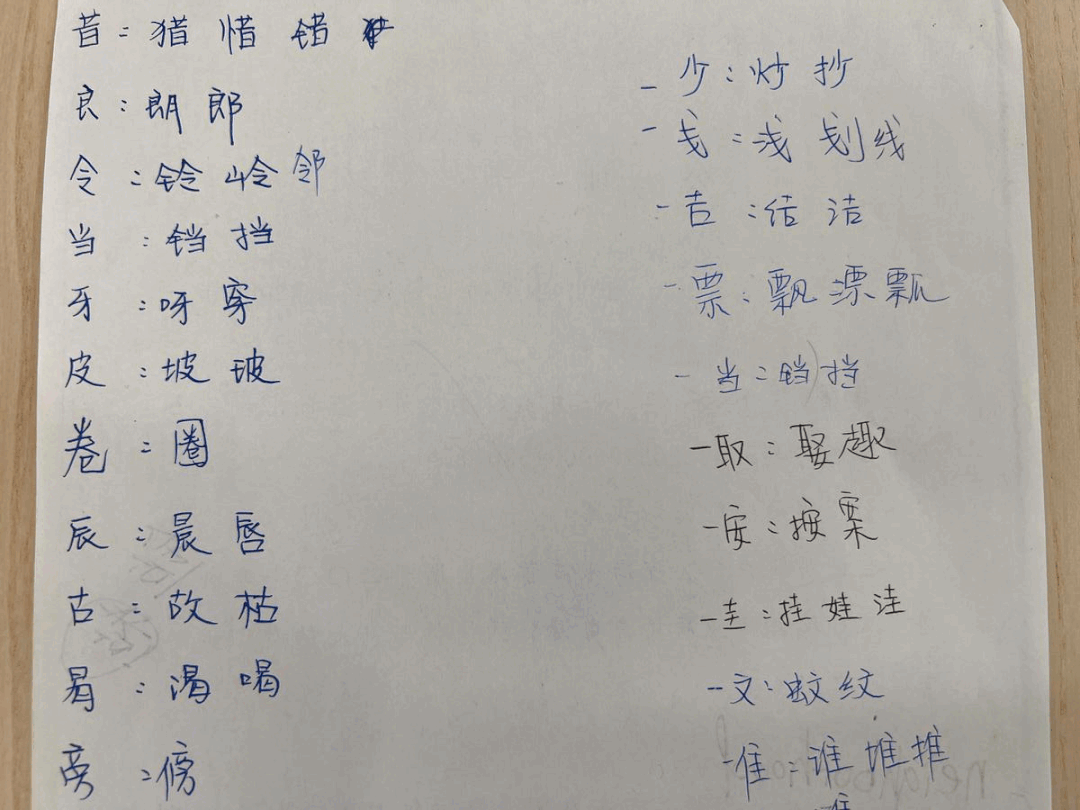 昔：猎 惜 错
良：朗 郎
令：铃 岭 邻
当：铛 挡
牙：呀 穿
皮：坡 玻
卷：圈
辰：晨 唇
古：故 枯
曷：渴 喝
旁：傍
- 少：炒 抄
- 戋：浅 划 线
- 吉：结 洁
- 票：飘 漂 瓢
- 当：铛 挡
- 取：娶 趣
- 安：按 案
- 圭：挂 娃 洼
- 文：蚊 纹
- 隹：谁 堆 推